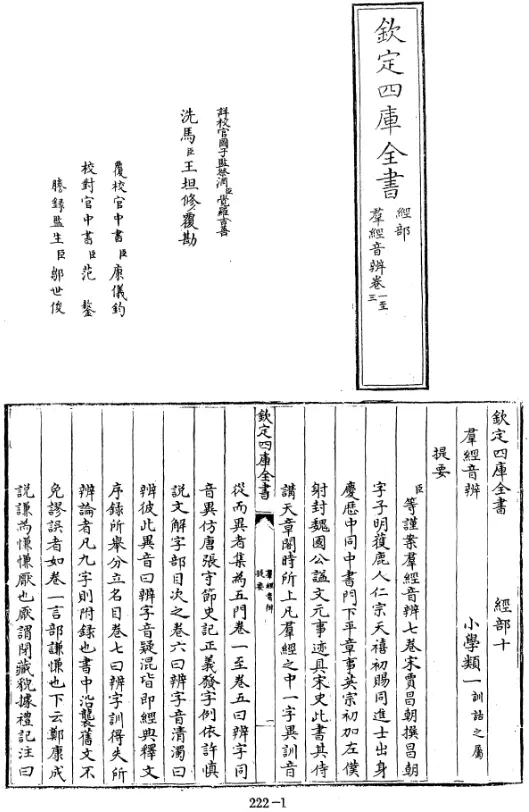 欽定四庫全書
經部
羣經音辨卷一至三
詳校官國子監祭酒臣覺羅吉善
洗馬臣王坦修覆勘
覆校官中書臣康儀鈞
校對官中書臣范鏊
謄錄監生臣鄒世俊
欽定四庫全書 經部十
羣經音辨 小學類一訓詁之屬
提要
臣等謹案羣經音辨七卷宋賈昌朝撰昌朝
字子明獲鹿人仁宗天禧初賜同進士出身
慶歴中同中書門下平章事英宗初加左僕
射封魏國公諡文元事迹具宋史此書其侍
講天章閣時所上凡羣經之中一字異訓音
欽定四庫全書
羣經音辨
提要
一
從而異者集為五門卷一至卷五曰辨字同
音異仿唐張守節史記正義發字例依許慎
說文解字部目次之卷六曰辨字音清濁曰
辨彼此異音曰辨字音疑混皆即經典釋文
序錄所舉分立名目卷七曰辨字訓得失所
辨論者凡九字則附録也書中沿襲舊文不
免謬誤者如卷一言部謙慊也下云鄭康成
說謙為慊慊厭也厭謂閉藏貌據禮記注曰
222-1